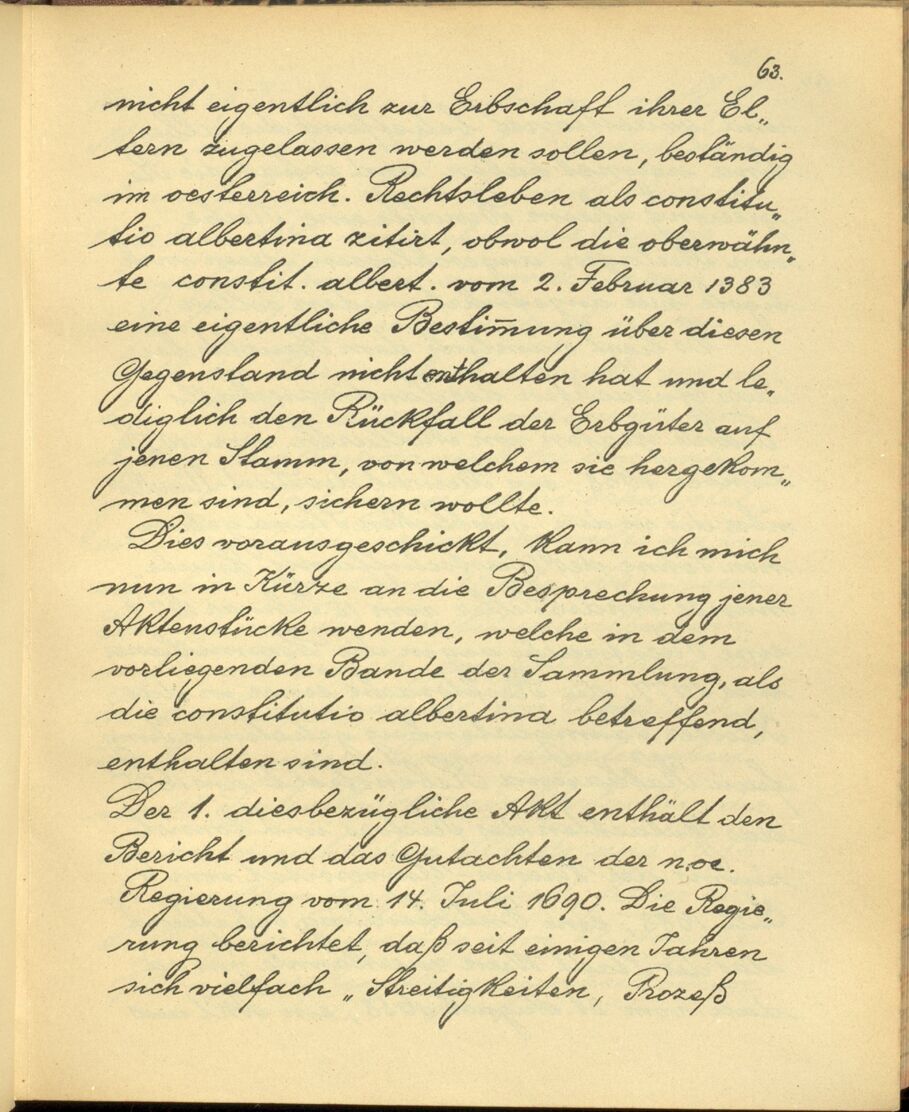 63.
nicht eigentlich zur Erbschaft ihrer El„
tern zugelassen werden sollen, beständig
im oesterreich. Rechtsleben als constitu„
tio albertina zitirt, obwol die oberwähn„
te constit. albert. vom 2. Februar 1383
eine eigentliche Bestim̅ung über diesen
Gegenstand nicht enthalten hat und le„
diglich den Rückfall der Erbgüter auf
jenen Stamm, von welchem sie hergekom„
men sind, sichern wollte.
Dies vorausgeschickt, kann ich mich
nun in Kürze an die Besprechung jener
Aktenstücke wenden, welche in dem
vorliegenden Bande der Sammlung, als
die constitutio albertina betreffend,
enthalten sind.
Der 1. diesbezügliche Akt enthält den
Bericht und das Gutachten der n.oe.
Regierung vom 14. Juli 1690. Die Regie„
rung berichtet, daß seit einigen Jahren
sich vielfach „Streitigkeiten, Prozeß